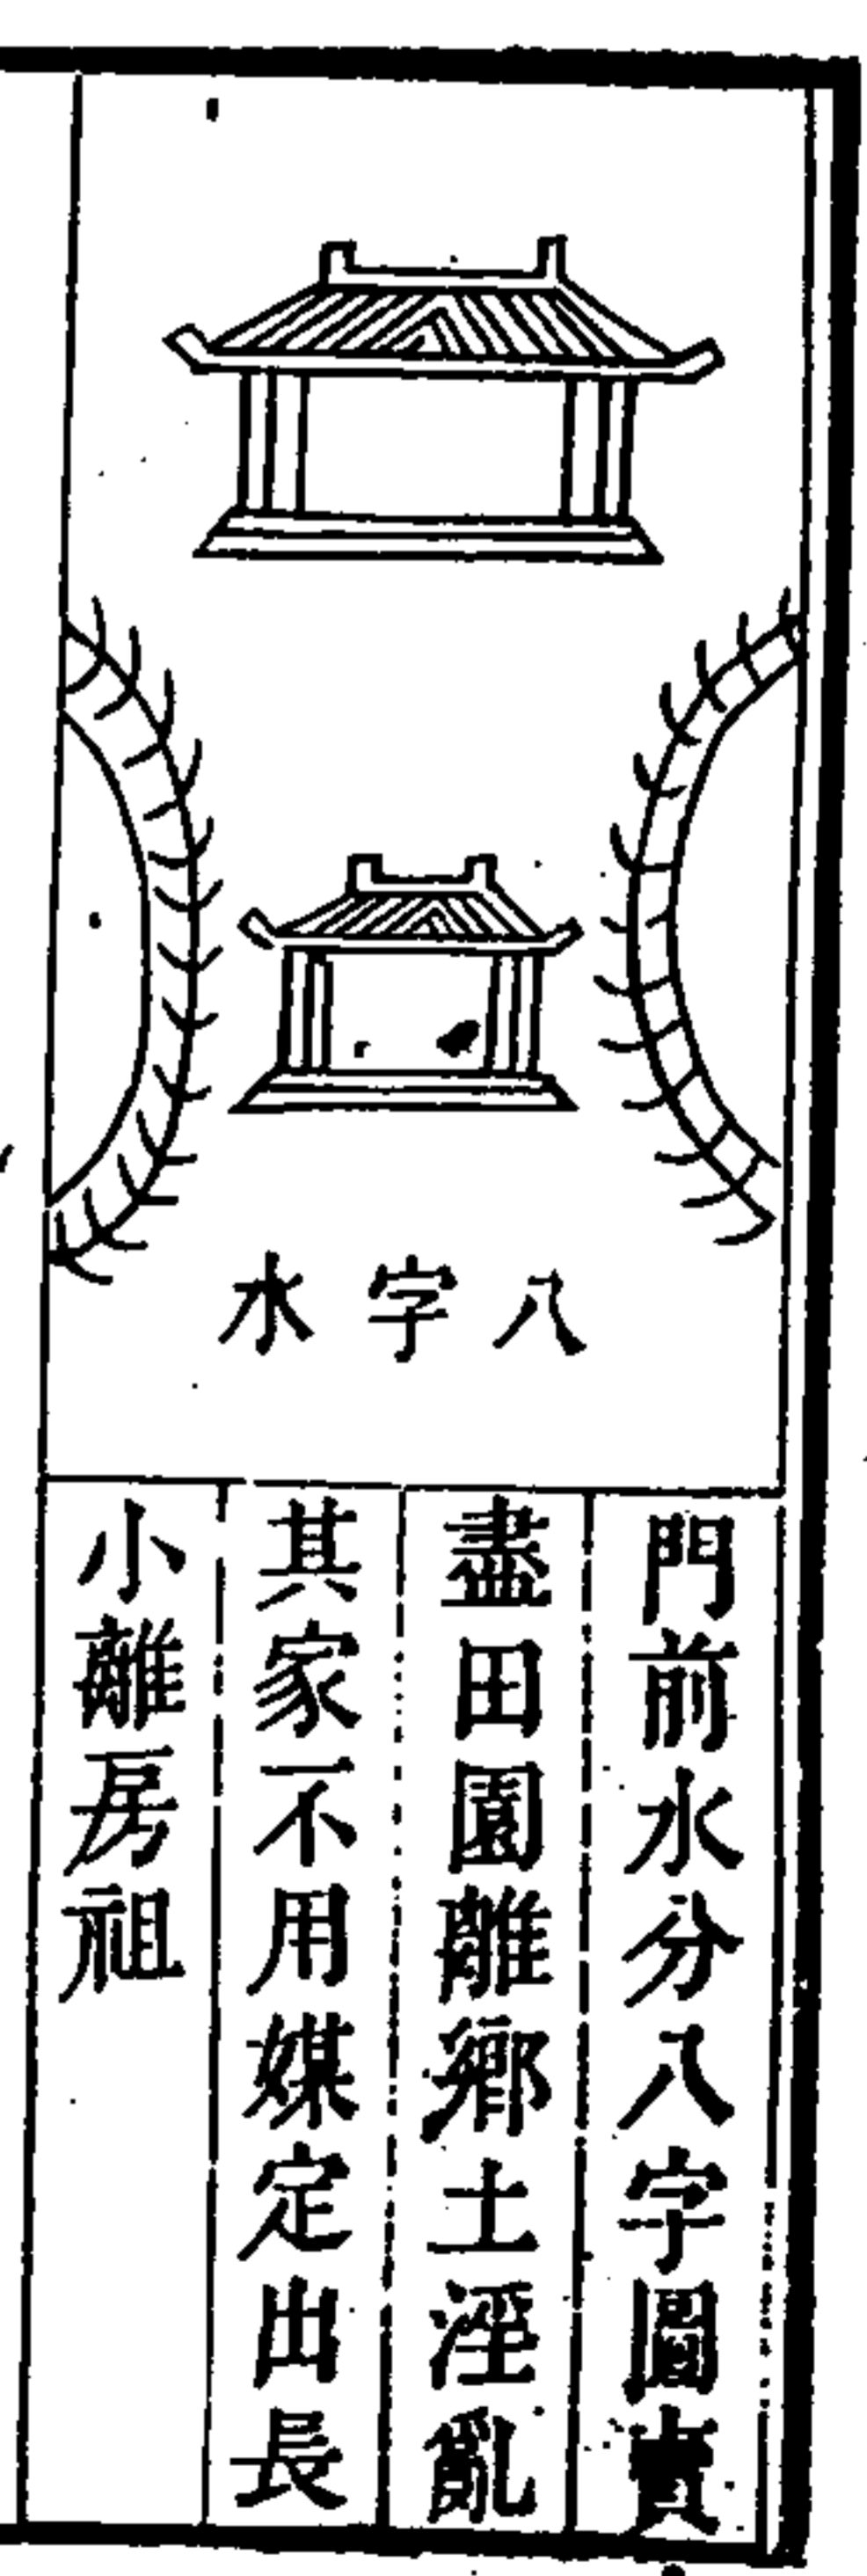 八字水
門前水分八字圓賣
盡田園離鄉土淫亂
其家不用媒定出長
小離房祖